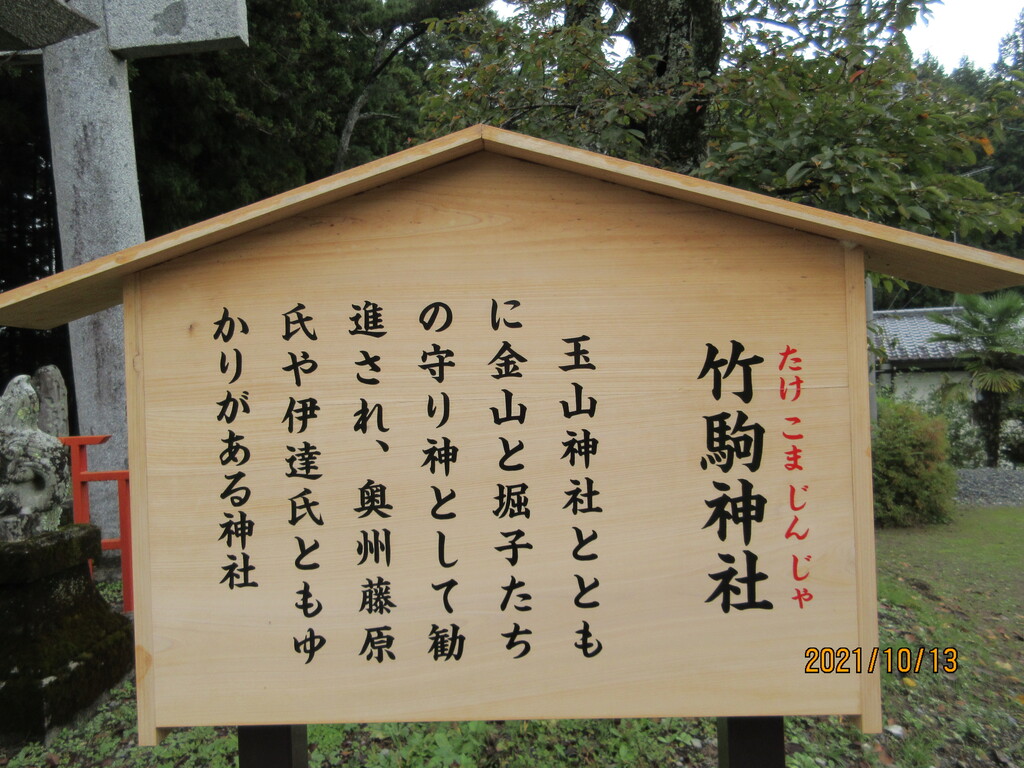 たけこまじんじゃ
竹駒神社
玉山神社ととも
に金山と堀子たち
の守り神として勧
進され、奥州藤原
氏や伊達氏ともゆ
かりがある神社
2021/10/13